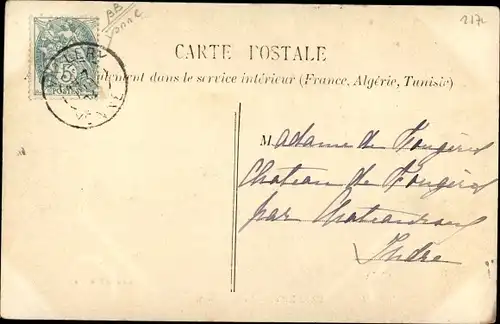 217c
CARTE POSTALE
ulement dans le service intérieur (France, Algérie, Tunisie)
5c
VIENNE
Madame de Fougères
Chateau de Fougères
par Chateauroux
Indre